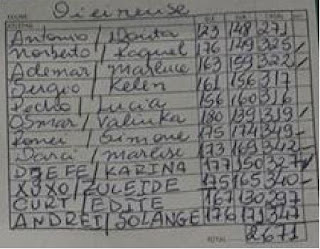 Oieirense
Antonio / Dorita 123 148 271
Norberto / Raquel 176 149 325
Ademar / Marlene 163 159 322
Sergio / Kelen 161 156 317
Pedro / Lucia 156 160 316
Osmar / Valinka 180 139 319
Ronei / Simone 175 174 349
Darci / Marlise 173 169 342
DREFE / KARINA 177 150 327
XUXO / ZULEIDE 175 165 340
CURT / EDITE 167 130 297
ANDREI / SOLANGE 176 171 347
TOTAL 2671